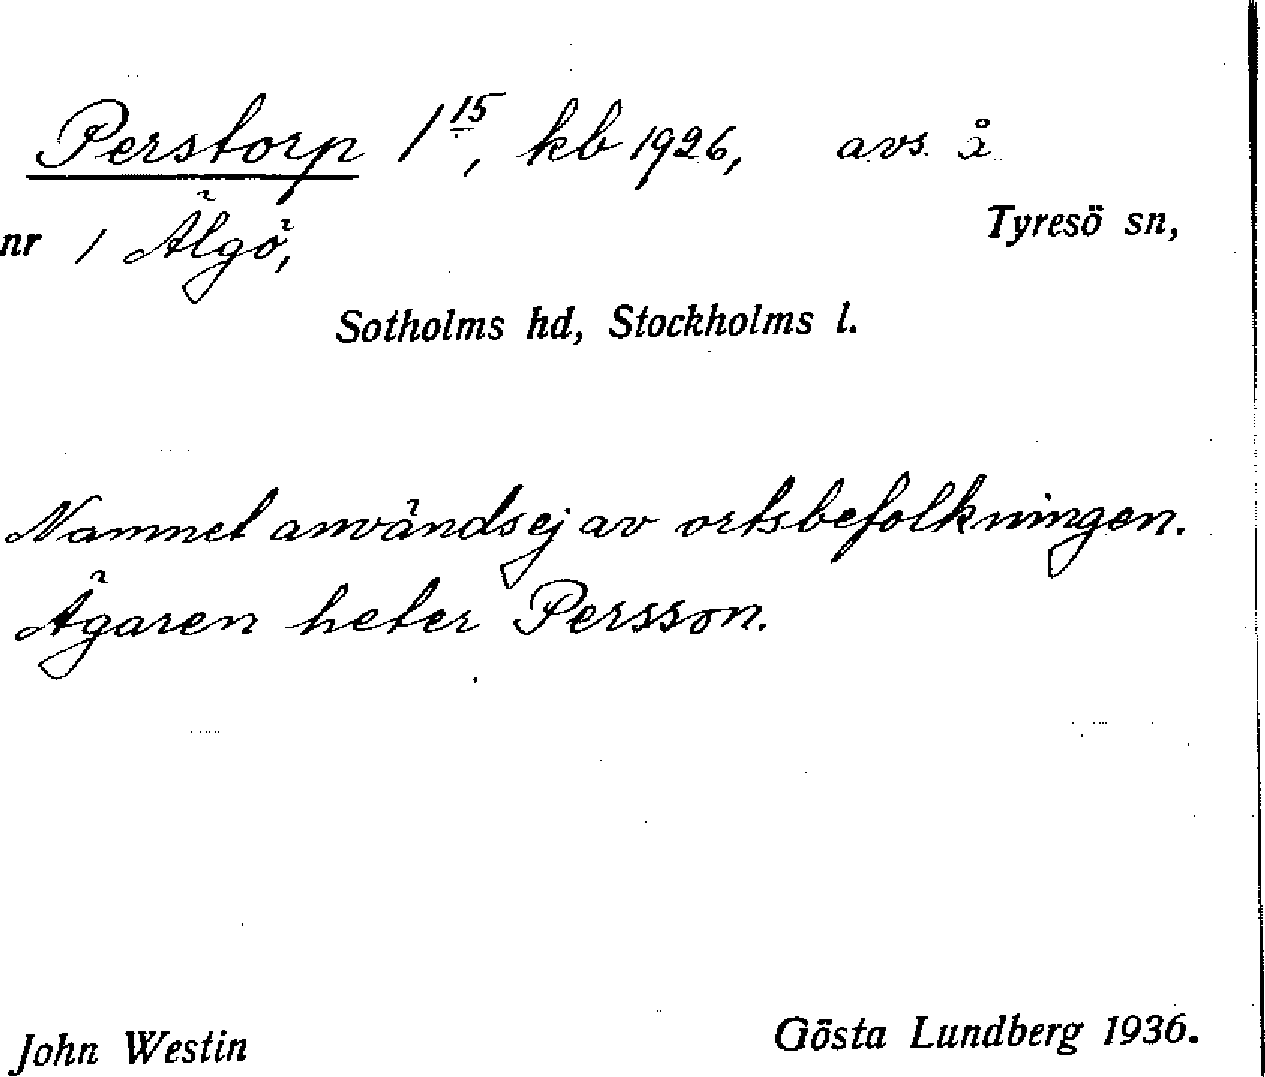 Perstorp 1 15, kb 1926, avs. å
Tyresö sn,
nr 1 Älgö,
Sotholms hd, Stockholms l.
Namnet användsej av ortsbefolkningen.
Ägaren heter Persson.
John Westin
Gösta Lundberg 1936.